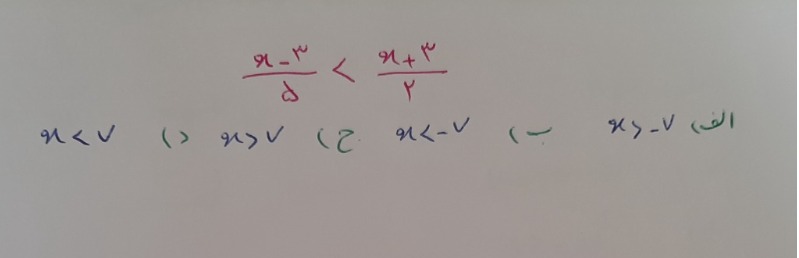 x-۳/۵ < x+۳/۲
الف) x>-۷ ب) x<-۷ ج) x>۷ د) x<۷